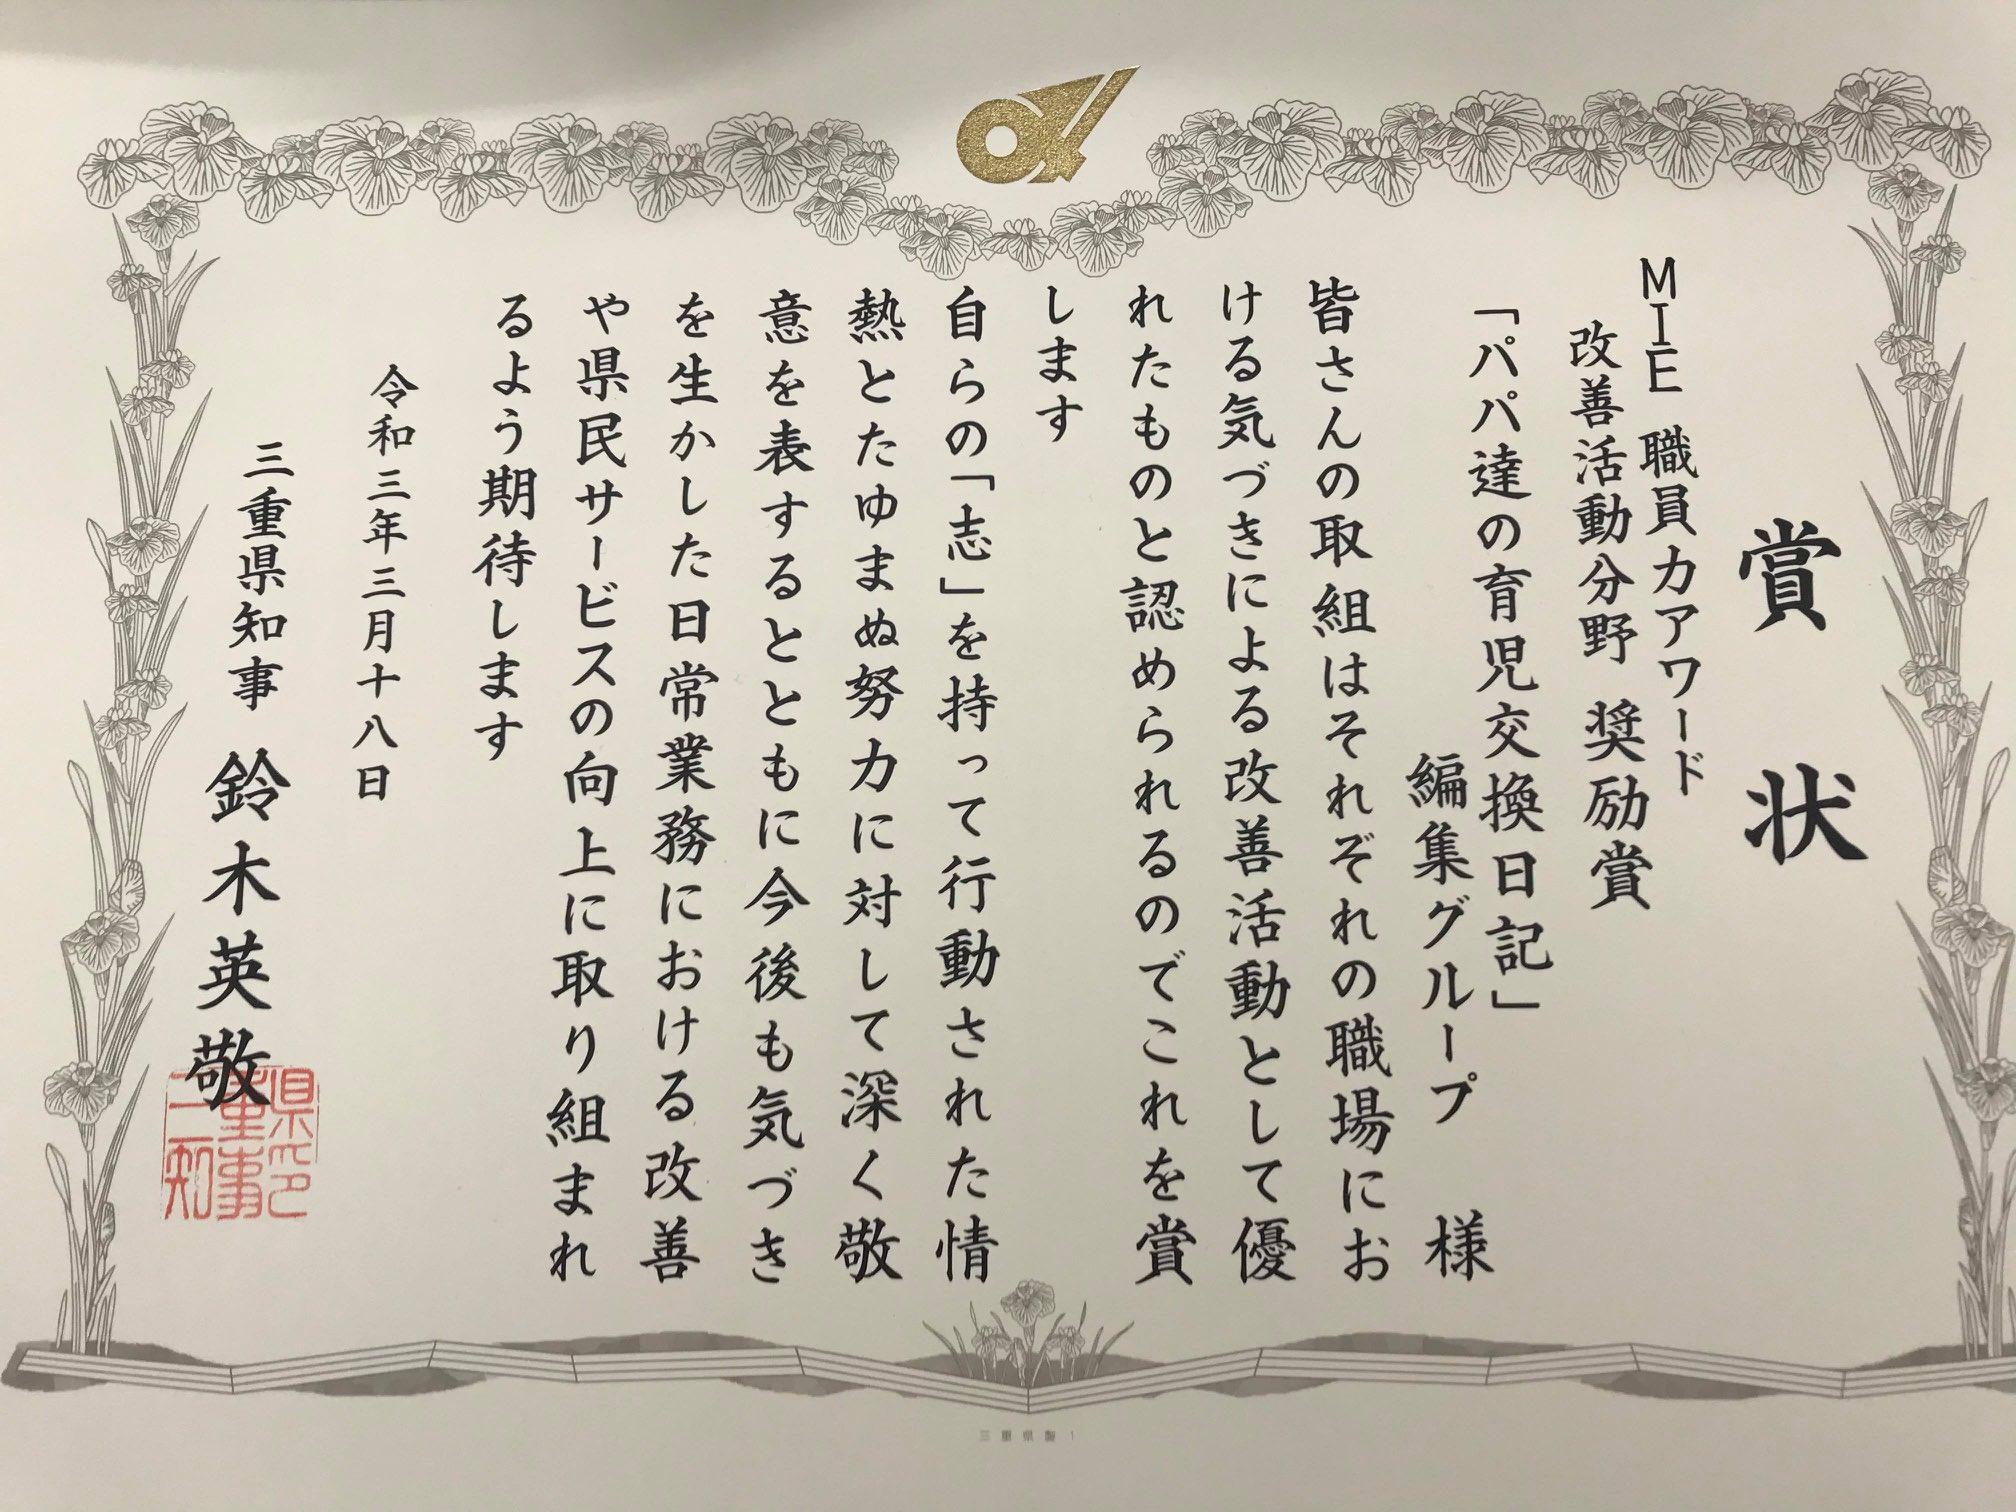 賞状
MIE 職員力アワード
改善活動分野 奨励賞
「パパ達の育児交換日記」
編集グループ 様
皆さんの取組はそれぞれの職場にお
ける気づきによる改善活動として優
れたものと認められるのでこれを賞
します
自らの「志」を持って行動された情
熱とたゆまぬ努力に対して深く敬
意を表するとともに今後も気づき
を生かした日常業務における改善
や県民サービスの向上に取り組まれ
るよう期待します
令和三年三月十八日
三重県知事 鈴木英敬
県印
重事
三知
三重県製 1